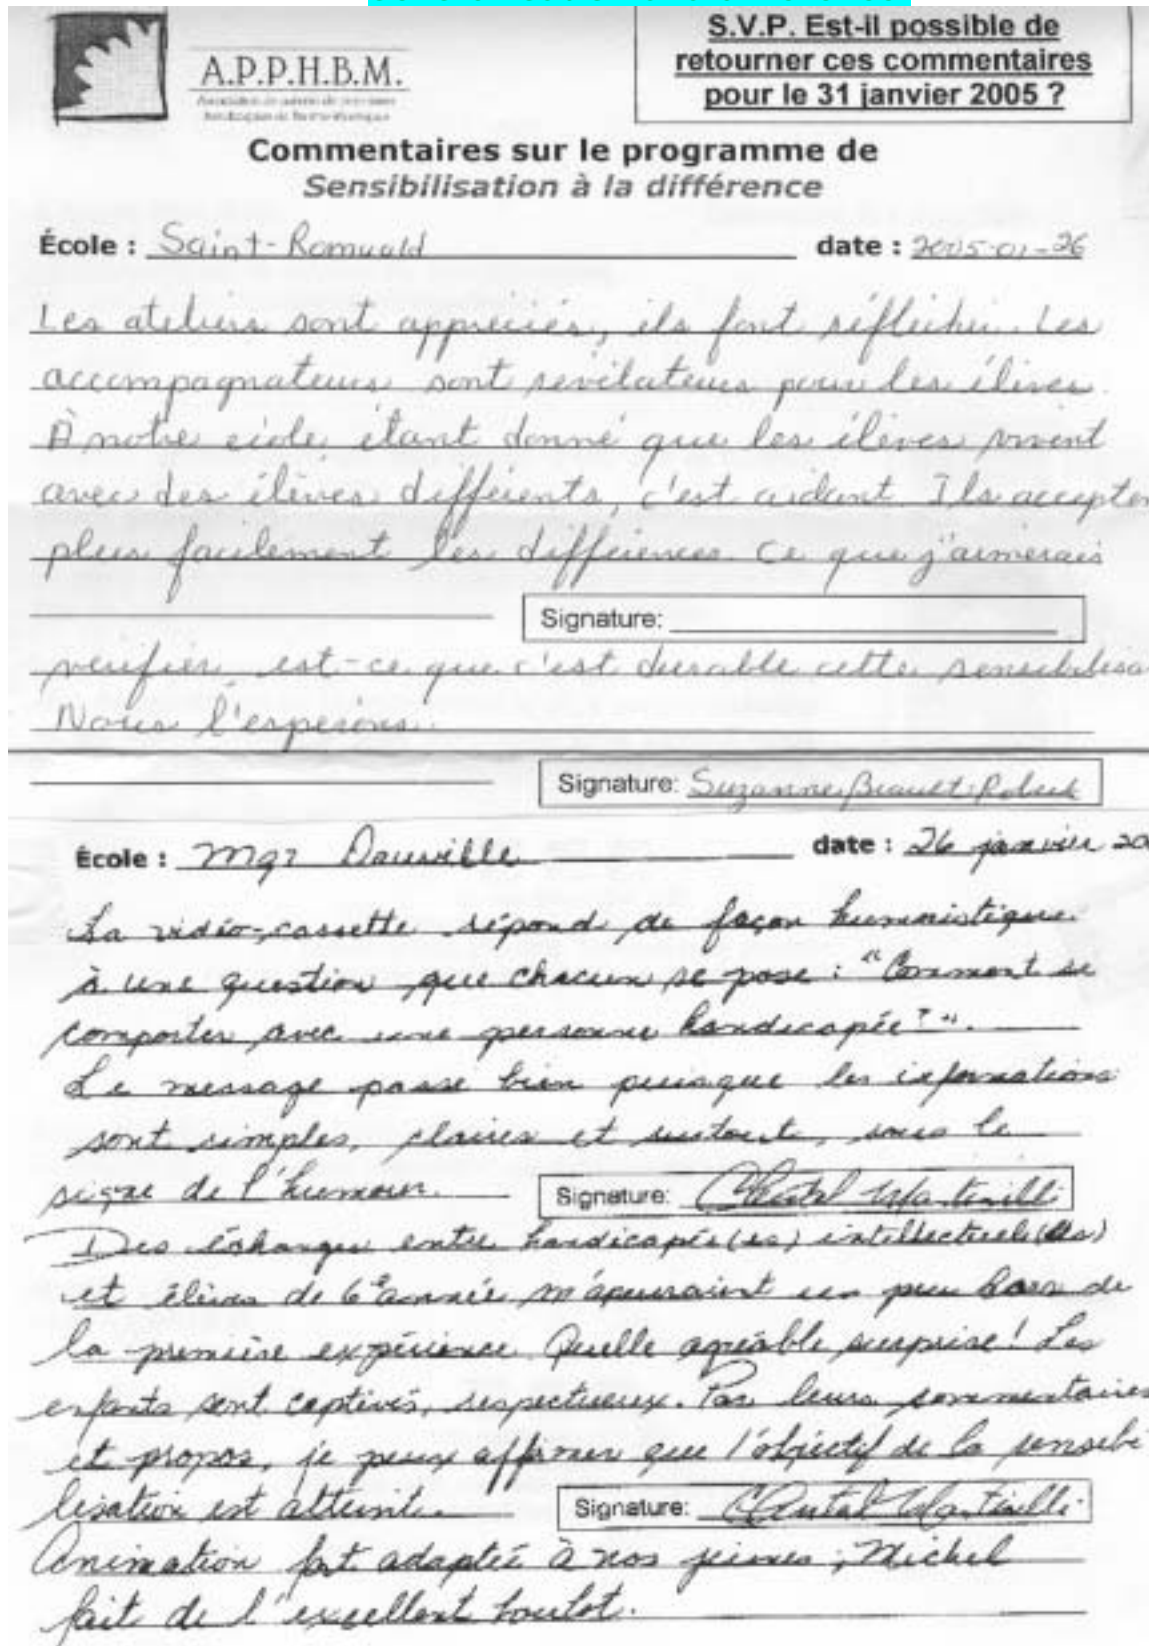 S.V.P. Est-il possible de
retourner ces commentaires
pour le 31 janvier 2005 ?
A.P.P.H.B.M.
Commentaires sur le programme de
Sensibilisation à la différence
École : Saint-Romuald date : 2005-01-26
Les ateliers sont appréciés, ils font réfléchir. Les
accompagnateurs sont révélateurs pour les élèves.
À notre école, étant donné que les élèves vivent
avec des élèves différents, c'est aidant. Ils accepten
plus facilement les différences. Ce que j'aimerais
Signature:
vérifier, est-ce que c'est durable cette sensibilisa
Nous l'espérons.
Signature: Suzanne
École : Mgr Douville date : 26 janvier 20
La vidéo-cassette répond de façon humanistique
à une question que chacun se pose : "Comment se
comporter avec une personne handicapée ?".
Le message passe bien puisque les informations
sont simples, claires et surtout, sous le
signe de l'humour. Signature: Chantal Martinelli
Des échanges entre handicapés(es) intellectuels(les)
et élèves de 6e année m'apeuraient un peu lors de
la première expérience. Quelle agréable surprise! Les
enfants sont captivés, respectueux. Par leurs commentaires
et propos, je peux affirmer que l'objectif de la sensibi
lisation est atteint. Signature: Chantal Martinelli
Animation fort adaptée à nos jeunes ; Michel
fait de l'excellent boulot.